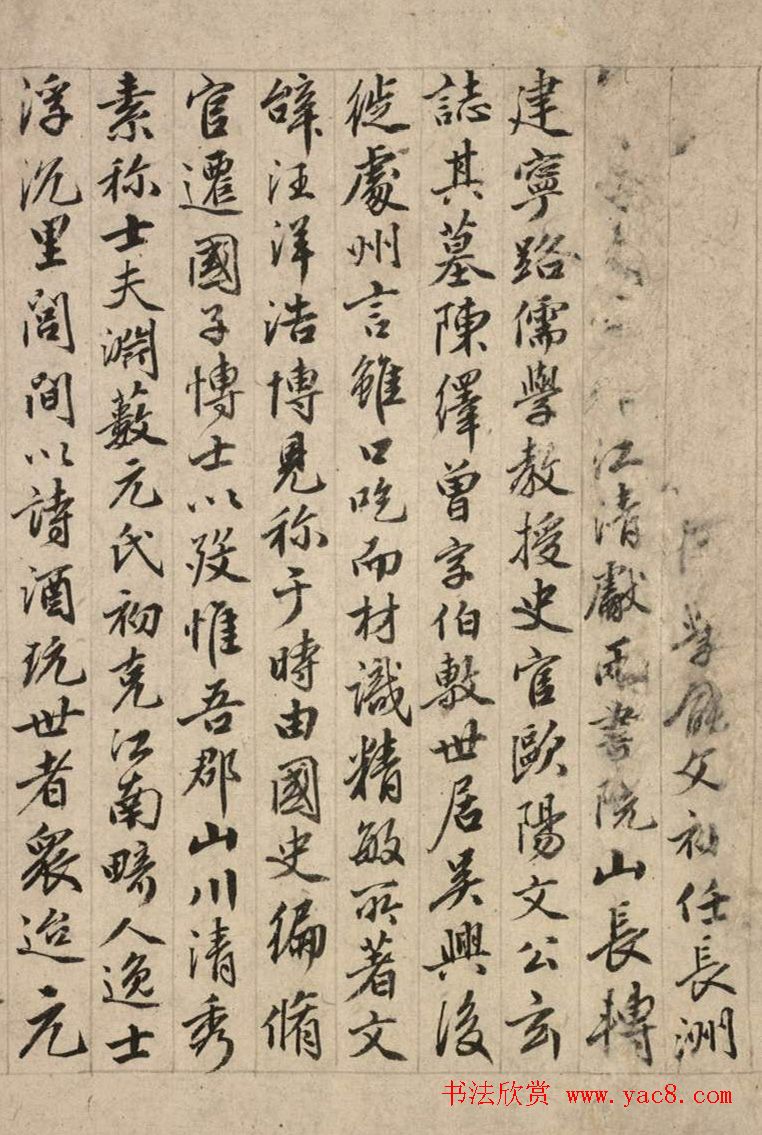 學能文初任長洲
江清獻書院山長轉
建寧路儒學教授史官歐陽文公玄
誌其墓陳繹曾字伯敷世居吳興後
徙處州言雖口吃而材識精敏所著文
辭汪洋浩博見称于時由國史編脩
官遷國子博士以殁惟吾郡山川清秀
素称士夫淵藪元氏初克江南畸人逸士
浮沉里閭間以詩酒玩世者衆迨元
书法欣赏 www.yac8.com